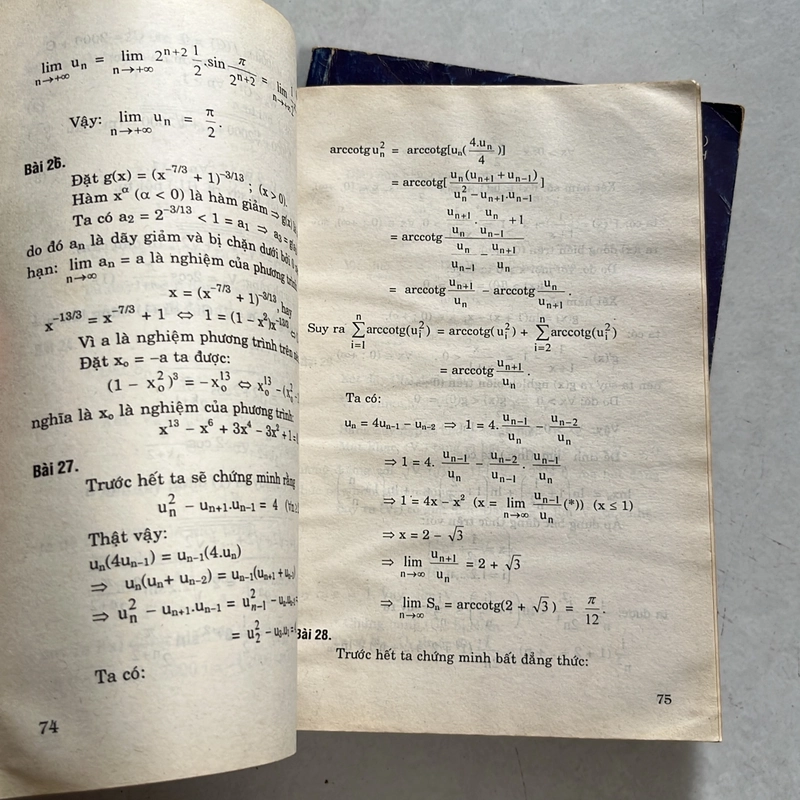 lim uₙ = lim 2ⁿ⁺² 1/2 .sin π/2ⁿ⁺² = lim
n→+∞ n→+∞ n→+∞
Vậy: lim uₙ = π/2.
n→+∞
Bài 26.
Đặt g(x) = (x⁻⁷/³ + 1)⁻³/¹³ ; (x > 0).
Hàm xᵅ (α < 0) là hàm giảm ⇒ g(x)
Ta có a₂ = 2⁻³/¹³ < 1 = a₁ ⇒ a₃ =
do đó aₙ là dãy giảm và bị chặn dưới bởi
hạn: lim aₙ = a là nghiệm của phương trình
n→∞
x = (x⁻⁷/³ + 1)⁻³/¹³, hay
x⁻¹³/³ = x⁻⁷/³ + 1 ⇔ 1 = (1 – x²)x⁻¹³/³ ⇔
Vì a là nghiệm phương trình trên
Đặt xₒ = –a ta được:
(1 – xₒ²)³ = –xₒ¹³ ⇔ xₒ¹³ – (xₒ²
nghĩa là xₒ là nghiệm của phương trình:
x¹³ – x⁶ + 3x⁴ – 3x² + 1 =
Bài 27.
Trước hết ta sẽ chứng minh rằng
uₙ² – uₙ₊₁.uₙ₋₁ = 4
Thật vậy:
uₙ(4uₙ₋₁) = uₙ₋₁(4.uₙ)
⇒ uₙ(uₙ + uₙ₋₂) = uₙ₋₁(uₙ₊₁ + uₙ₋₁)
⇒ uₙ² – uₙ₊₁.uₙ₋₁ = uₙ₋₁² – uₙ.uₙ₋₂ =
= u₂² – u₃.u₁ =
Ta có:
74
arccotg uₙ² = arccotg[uₙ(4.uₙ/4)]
= arccotg[uₙ(uₙ₊₁ + uₙ₋₁)/(uₙ² – uₙ₊₁.uₙ₋₁)]
= arccotg (uₙ₊₁/uₙ . uₙ/uₙ₋₁ + 1)/(uₙ/uₙ₋₁ – uₙ₊₁/uₙ)
= arccotg uₙ₊₁/uₙ – arccotg uₙ/uₙ₊₁.
Suy ra ∑ⁿᵢ₌₁ arccotg(uᵢ²) = arccotg(u₁²) + ∑ⁿᵢ₌₂ arccotg(uᵢ²)
= arccotg uₙ₊₁/uₙ .
Ta có:
uₙ = 4uₙ₋₁ – uₙ₋₂ ⇒ 1 = 4. uₙ₋₁/uₙ – uₙ₋₂/uₙ
⇒ 1 = 4. uₙ₋₁/uₙ – uₙ₋₂/uₙ₋₁ . uₙ₋₁/uₙ
⇒ 1 = 4x – x² (x = lim uₙ₋₁/uₙ (*)) (x ≤ 1)
n→∞
⇒ x = 2 – √3
⇒ lim uₙ₊₁/uₙ = 2 + √3
n→∞
⇒ lim Sₙ = arccotg(2 + √3) = π/12.
n→∞
Bài 28.
Trước hết ta chứng minh bất đẳng thức:
75